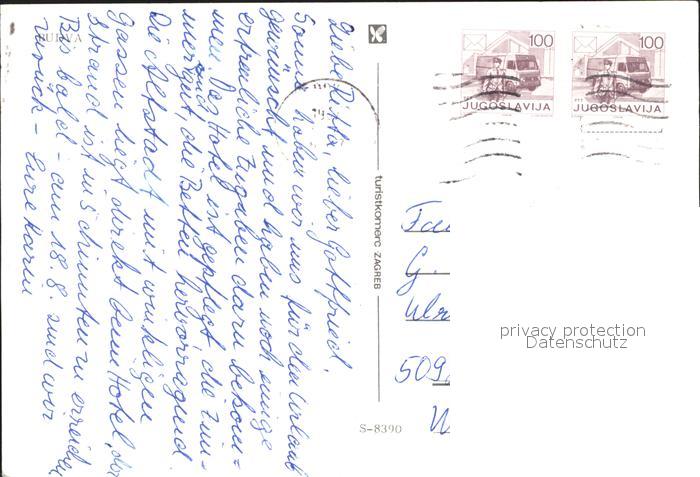 BUDVA
Liebe Ditta, lieber Gottfried,
Sonne haben wir uns für den Urlaub
gewünscht und haben noch einige
erfreuliche Zugaben dazu bekom=
men. Das Hotel ist gepflegt, die Zim-
mer sind gut, die Betten hervorragend.
Die Altstadt mit winkligen
Gassen liegt direkt beim Hotel, der
Strand ist in 5 Minuten zu erreichen.
Bis bald - am 18.8. sind wir
zurück - Eure Karin
turistkomerc ZAGREB
S-8390
100
JUGOSLAVIJA
100
JUGOSLAVIJA
G.
509
privacy protection
Datenschutz